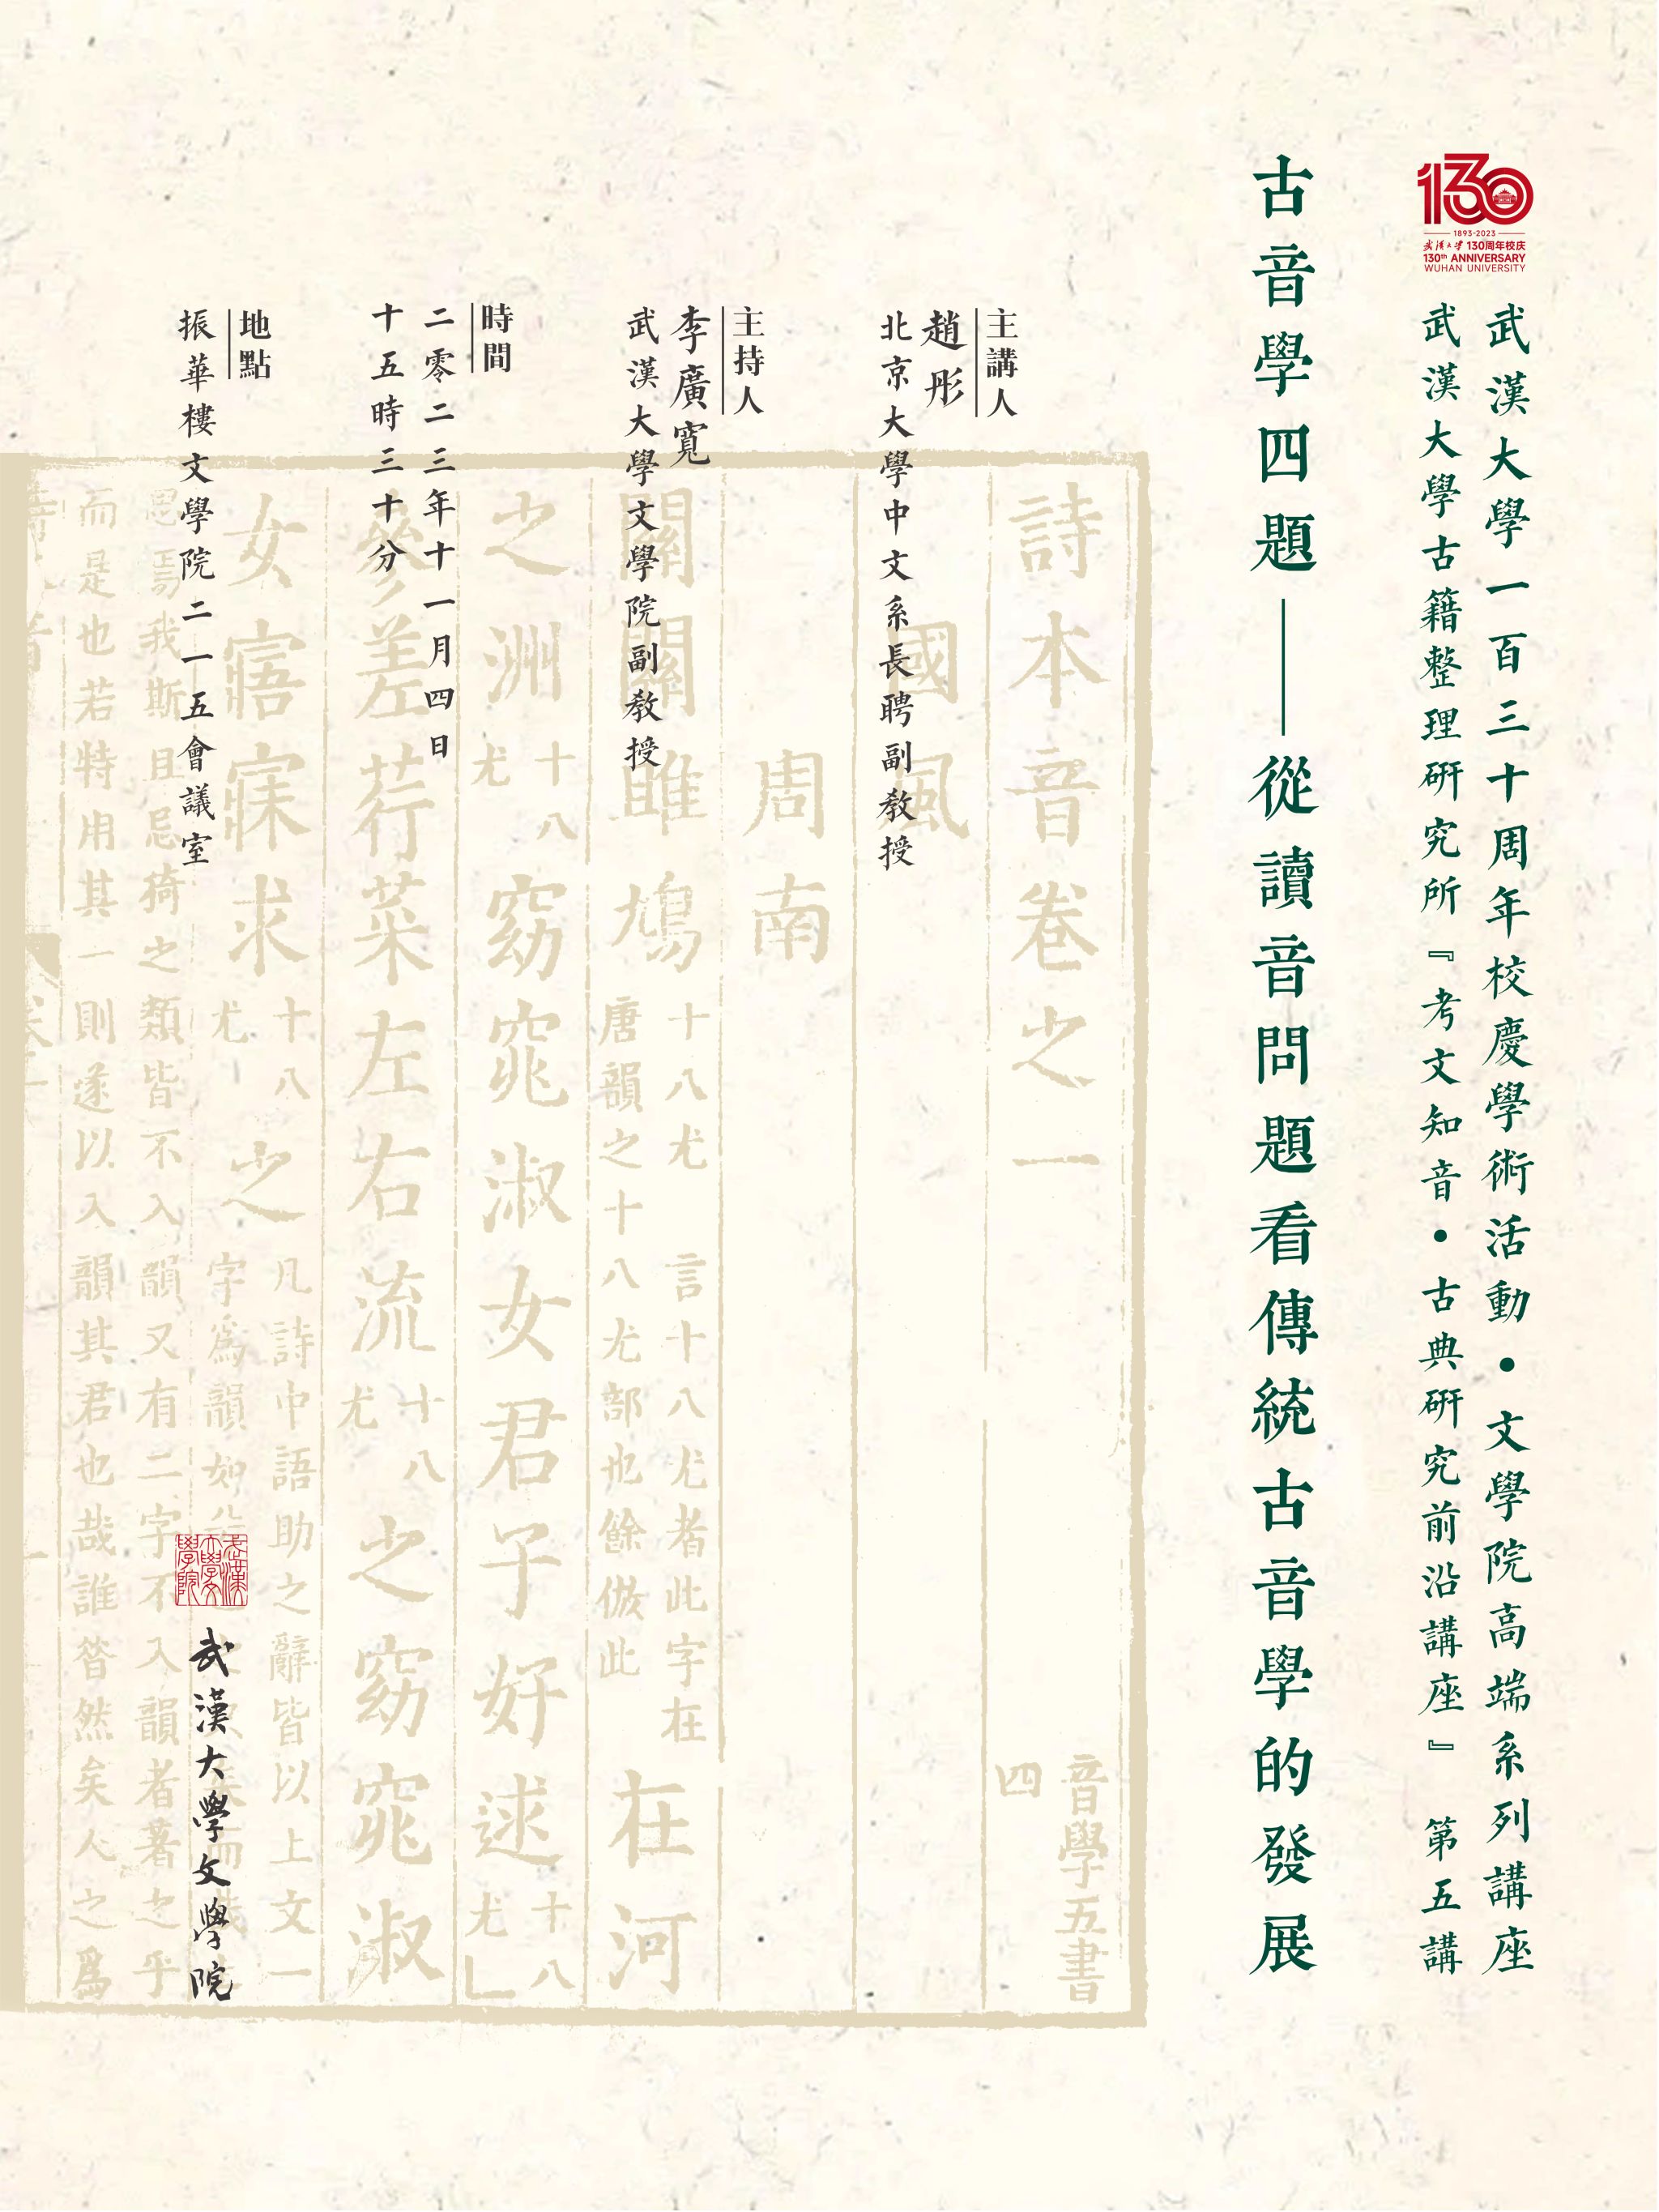 130
1893-2023
武漢大學 130周年校庆
130th ANNIVERSARY
WUHAN UNIVERSITY
武漢大學一百三十周年校慶學術活動・文學院高端系列講座
武漢大學古籍整理研究所『考文知音・古典研究前沿講座』 第五講
古音學四題——從讀音問題看傳統古音學的發展
主講人
趙彤
北京大學中文系長聘副教授
主持人
李廣寬
武漢大學文學院副教授
時間
二零二三年十一月四日
十五時三十分
地點
振華樓文學院二一五會議室
武漢大學文學院
武漢大學文學院
音學五書
四
詩本音卷之一
國風
周南
關關雎鳩十八尤 言十八尤者此字在唐韻之十八尤部也餘倣此 在河
之洲十八尤窈窕淑女君子好逑十八尤
參差荇菜左右流十八尤之窈窕淑
女寤寐求十八尤之凡詩中語助之辭皆以上文一
字爲韻如
思焉我斯且忌猗之類皆不入韻又有二字不入韻者著之乎
而是也若特用其一則遂以入韻其君也哉誰昔然矣人之爲